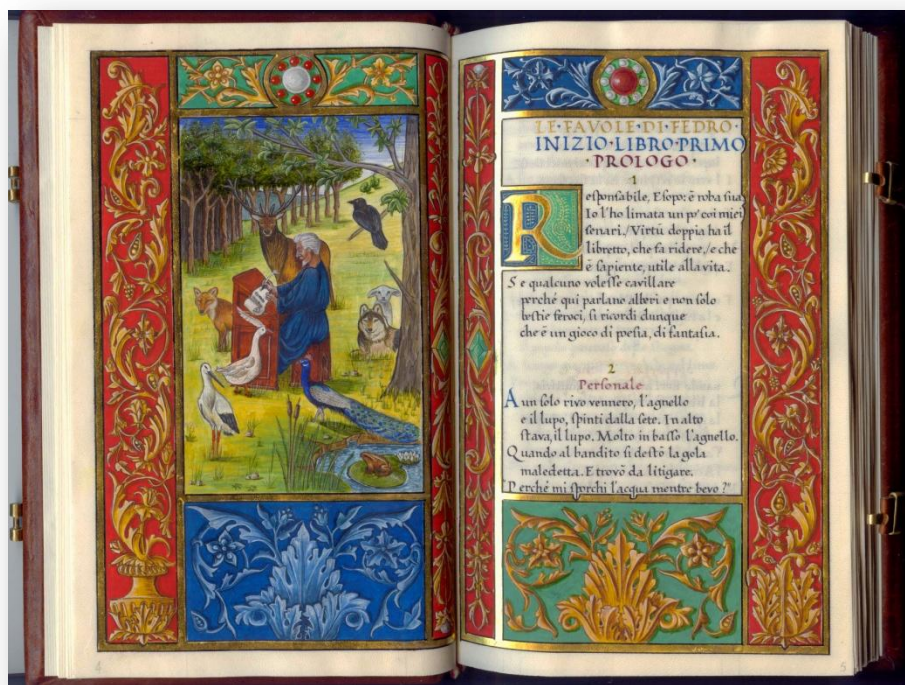 LE·FAVOLE·DI·FEDRO·
INIZIO·LIBRO·PRIMO
·PROLOGO·
1
Responsabile, Esopo: è roba sua
Io l'ho limata un po' coi miei
senari./Virtù doppia ha il
libretto, che fa ridere,/e che
è sapiente, utile alla vita.
Se qualcuno volesse cavillare
perché qui parlano alberi e non solo
bestie feroci, si ricordi dunque
che è un gioco di poesia, di fantasia.
2
Personale
A un solo rivo vennero, l'agnello
e il lupo, spinti dalla sete. In alto
stava, il lupo. Molto in basso l'agnello.
Quando al bandito si destò la gola
maledetta. E trovò da litigare.
"Perché mi sporchi l'acqua mentre bevo?"
4
5